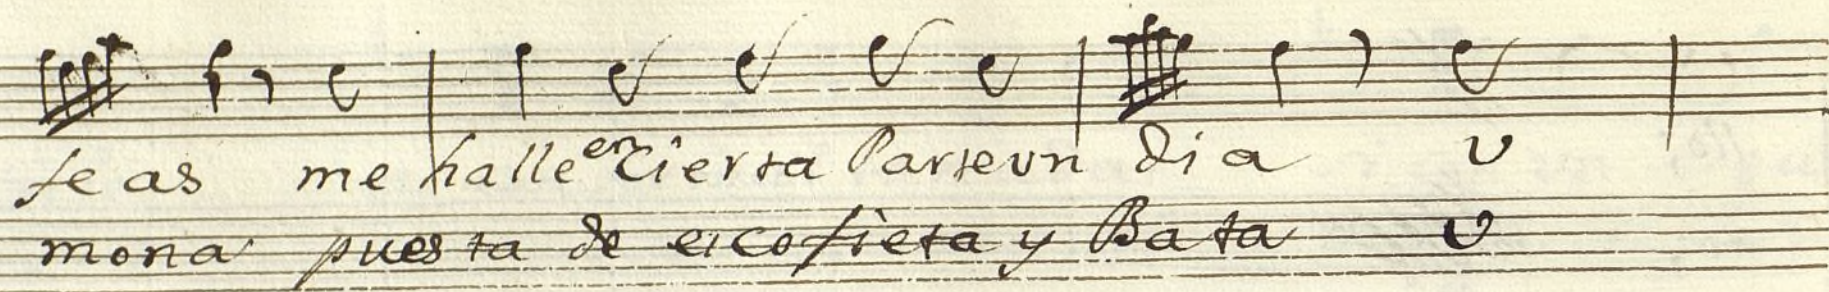 fe as me halle en Cierta Parte vn dia v
mona puesta de escofieta y Bata v